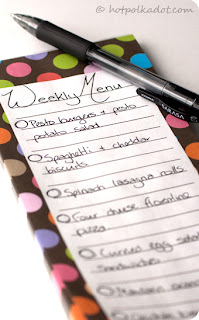 © hotpolkadot.com
Weekly Menu
Pesto burgers + pesto
potato salad
Spaghetti & cheddar
biscuits
Spinach lasagna rolls
Four cheese florentine
pizza
Curried egg salad
sandwiches